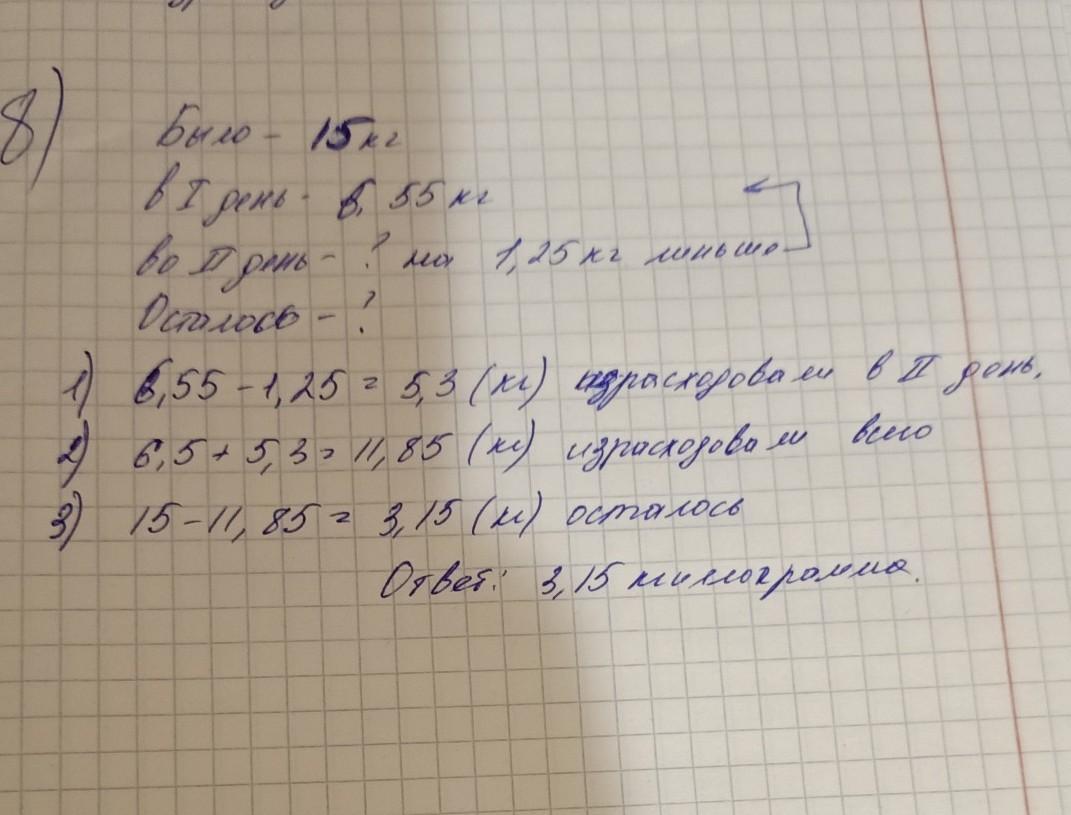 8)
Было - 15 кг
в I день - 6,55 кг
во II день - ? на 1,25 кг меньше
Осталось - ?
1) 6,55 - 1,25 = 5,3 (кг) израсходовали в II день.
2) 6,5 + 5,3 = 11,85 (кг) израсходовали всего
3) 15 - 11,85 = 3,15 (кг) осталось
Ответ: 3,15 килограмма.